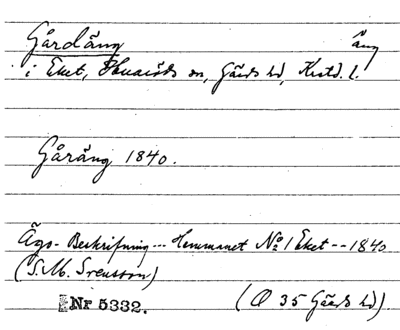 Gårdäng äng
i Eket, Huaröds sn, Gärds hd, Krstd. l.
Gåräng 1840.
Ägo-Beskrifning... Hemmanet No 1 Eket -- 1840
(S.M. Svensson)
Nr 5332. (Q 35 Gärds hd)